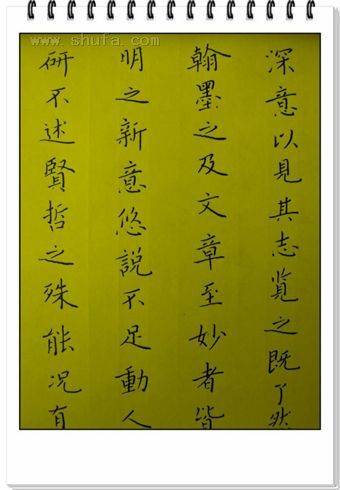 www.shufa.com
深意以見其志览之既了然
翰墨之及文章至妙者皆
明之新意悠說不足動人
研不述賢哲之殊能况有